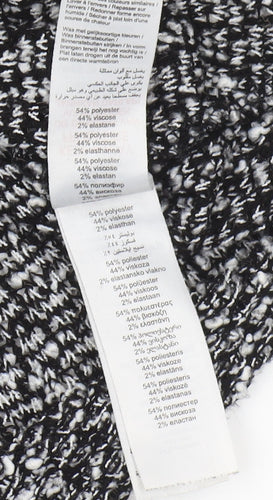 l'envers / Repasser sur
l'envers / Redonner forme encore
humide / Sécher à plat loin d'une
source de chaleur
Was met gelijksoortige kleuren /
Was binnenstebuiten /
binnenstebuiten strijken / In vorm
brengen terwijl het nog vochtig is /
Plat laten drogen uit de buurt van
een directe warmtebron
يغسل مع ألوان مماثلة
يغسل مقلوب
54% polyester
44% viscose
2% elastane
54% polyester
44% viscose
2% élasthanne
54% polyester
44% viscose
2% elasthan
54% полиэфир
44% вискоза
54% polyester
44% viscose
2% elasthan
54% polyester
44% viskoza
2% elastansko vlakno
54% polüester
44% viskoos
2% elastaan
54% πολυεστέρας
44% βισκόζη
2% ελαστάνη
54% პოლიესტერი
44% ვისკოზა
2% ელასტანი
54% poliesteris
44% viskoze
2% elastāns
54% poliesteris
44% viskozė
2% elastanas
54% полиестер
44% вискоза
2% еластан